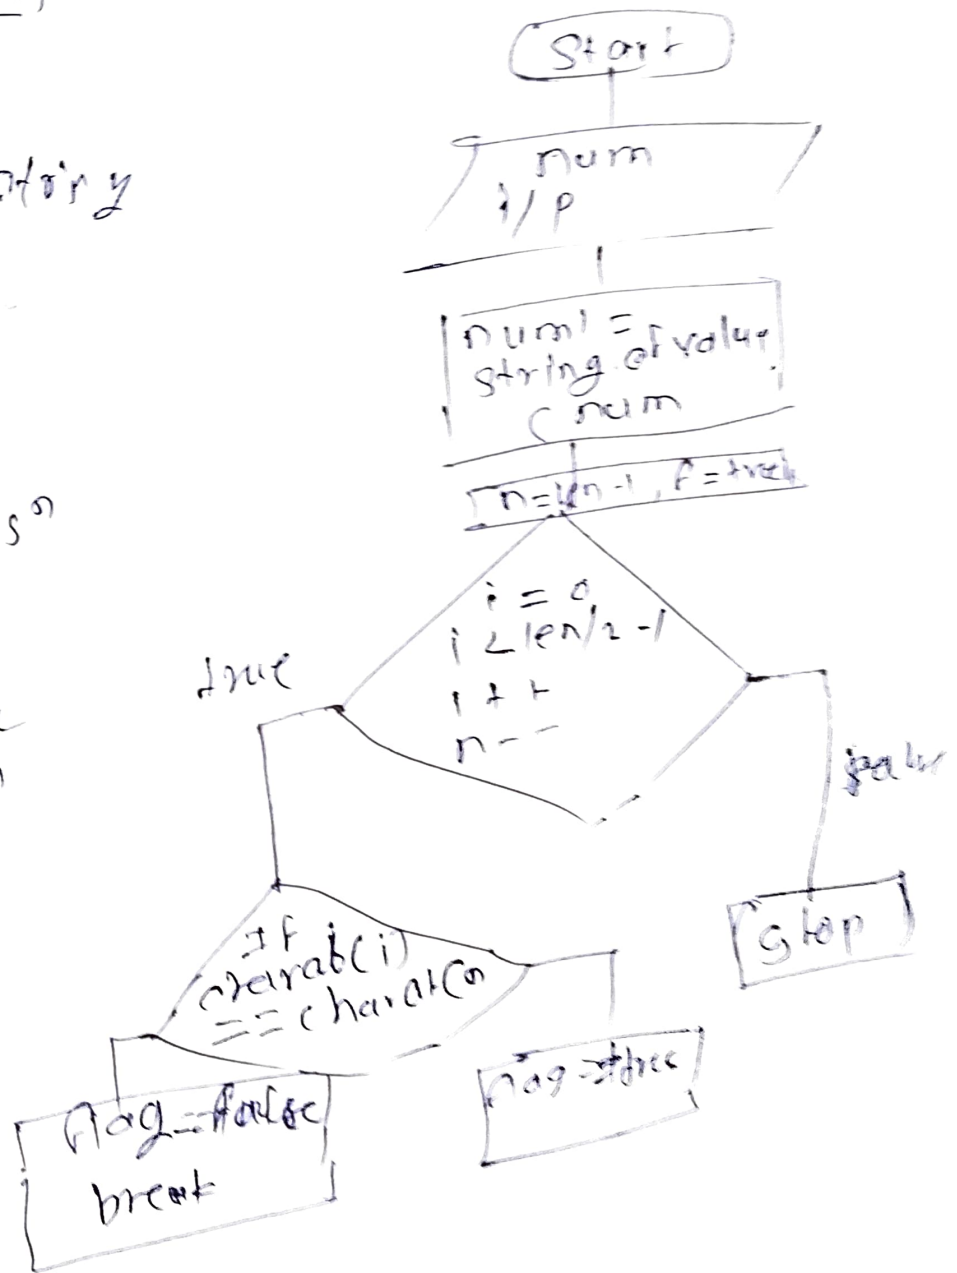 Start
num
i/p
num1 =
string of value
( num
n=len-1, f=true
i = 0
i < len/2 -1
i + +
n - -
true
If
charat(i)
== charat(n
Stop
flag=false
break
flag=true